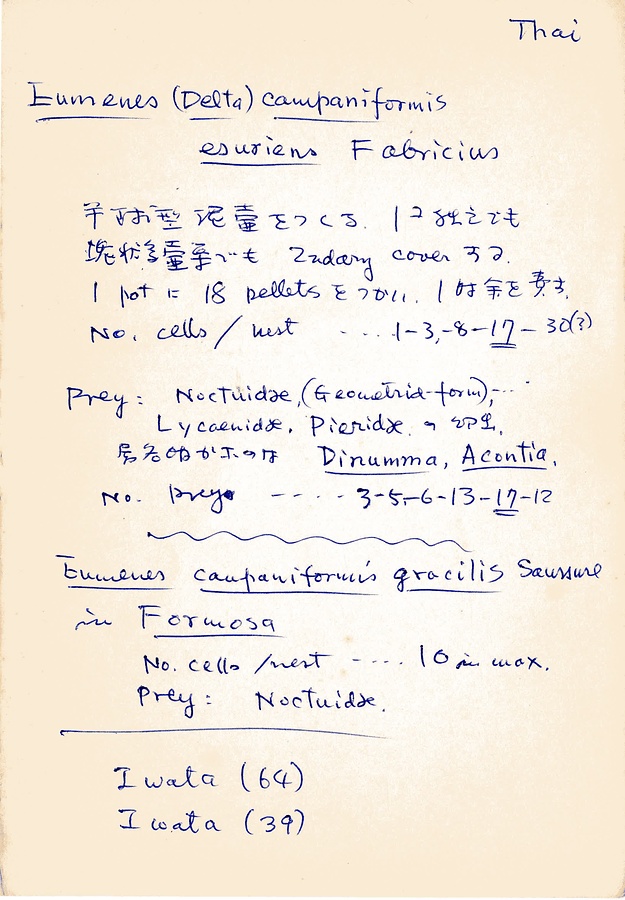 Thai
Eumenes (Delta) campaniformis
esuriens Fabricius
半球型泥壷をつくる. 1コ独立でも
塊状多壷巣でも 2ndary cover する.
1 potに 18 pelletsをつかい, 1時余を費す.
No. cells / nest ---- 1-3,-8-17-30(?)
Prey: Noctuidae, (Geometrid-form),---
Lycaenidae, Pieridae の幼虫,
属名明かなのは Dinumma, Acontia,
No. prey ---- 3-5,-6-13-17-12
Eumenes campaniformis gracilis Saussure
in Formosa
No. cells /nest ---- 10 in max.
Prey: Noctuidae.
Iwata (64)
Iwata (39)